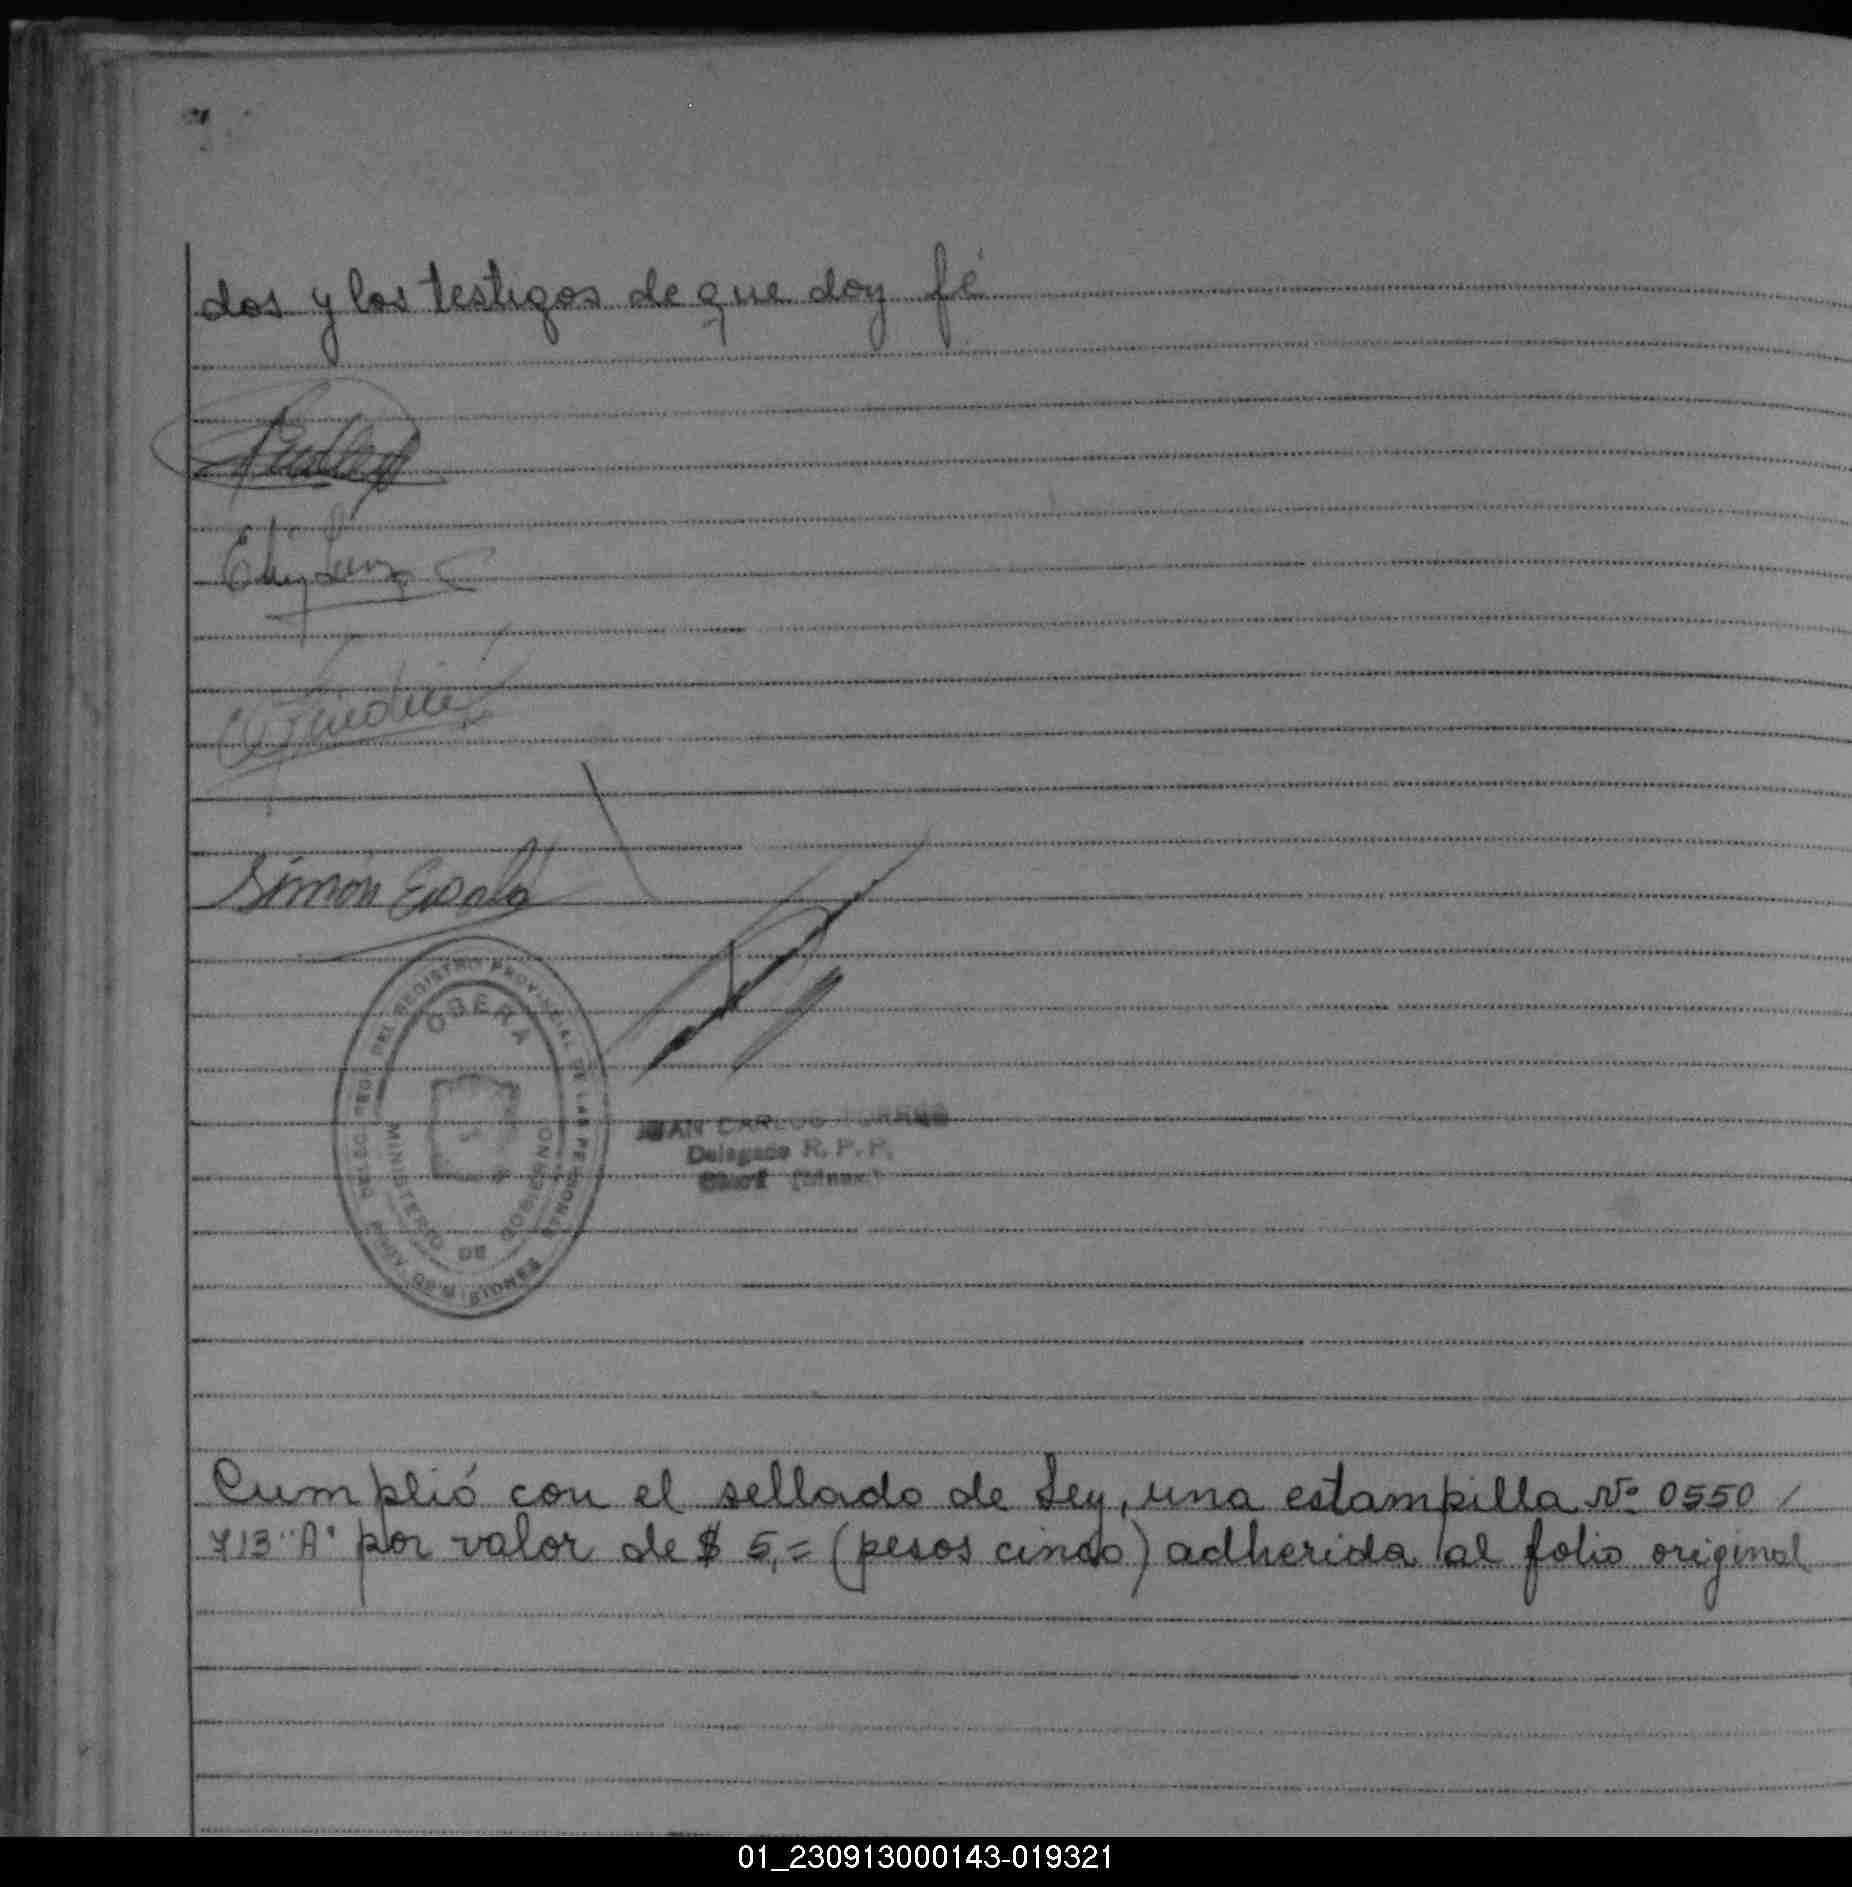 dos y los testigos de que doy fé
Simón
DELEGACION DEL REGISTRO PROVINCIAL DE LAS PERSONAS
OBERA
MINISTERIO DE GOBIERNO
PROV. DE MISIONES
JUAN CARLOS TORRES
Delegado R. P. P.
Cumplió con el sellado de Ley, una estampilla Nº 0550 /
713 "A" por valor de $ 5,= (pesos cinco) adherida al folio original
01_230913000143-019321